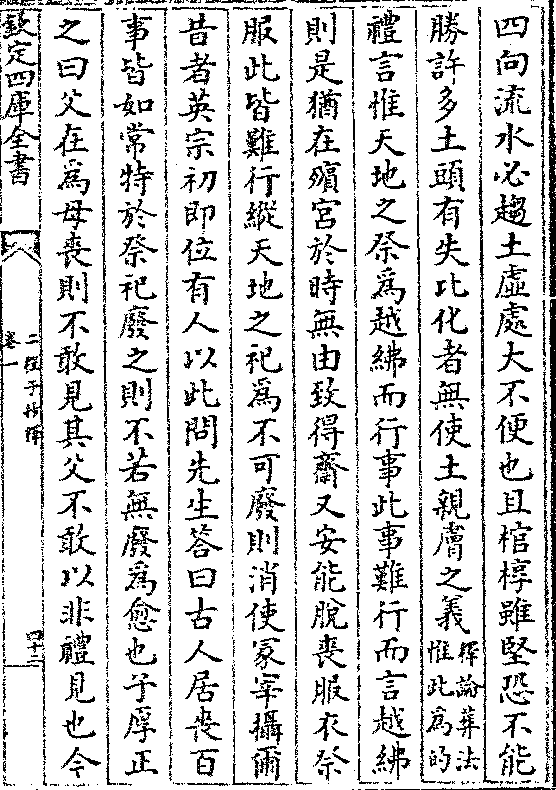 四向流水必趨土虛處大不便也且棺椁雖堅恐不能
勝許多土頭有失比化者無使土親膚之義擇論葬法惟此為的
禮言惟天地之祭為越紼而行事此事難行而言越紼
則是猶在殯宮於時無由致得齋又安能脫喪服衣祭
服此皆難行縱天地之祀為不可廢則消使冢宰攝爾
昔者英宗初即位有人以此問先生答曰古人居喪百
事皆如常特於祭祀廢之則不若無廢為愈也子厚正
之曰父在為母喪則不敢見其父不敢以非禮見也今
欽定四庫全書
二程子抄釋
卷一
四十二